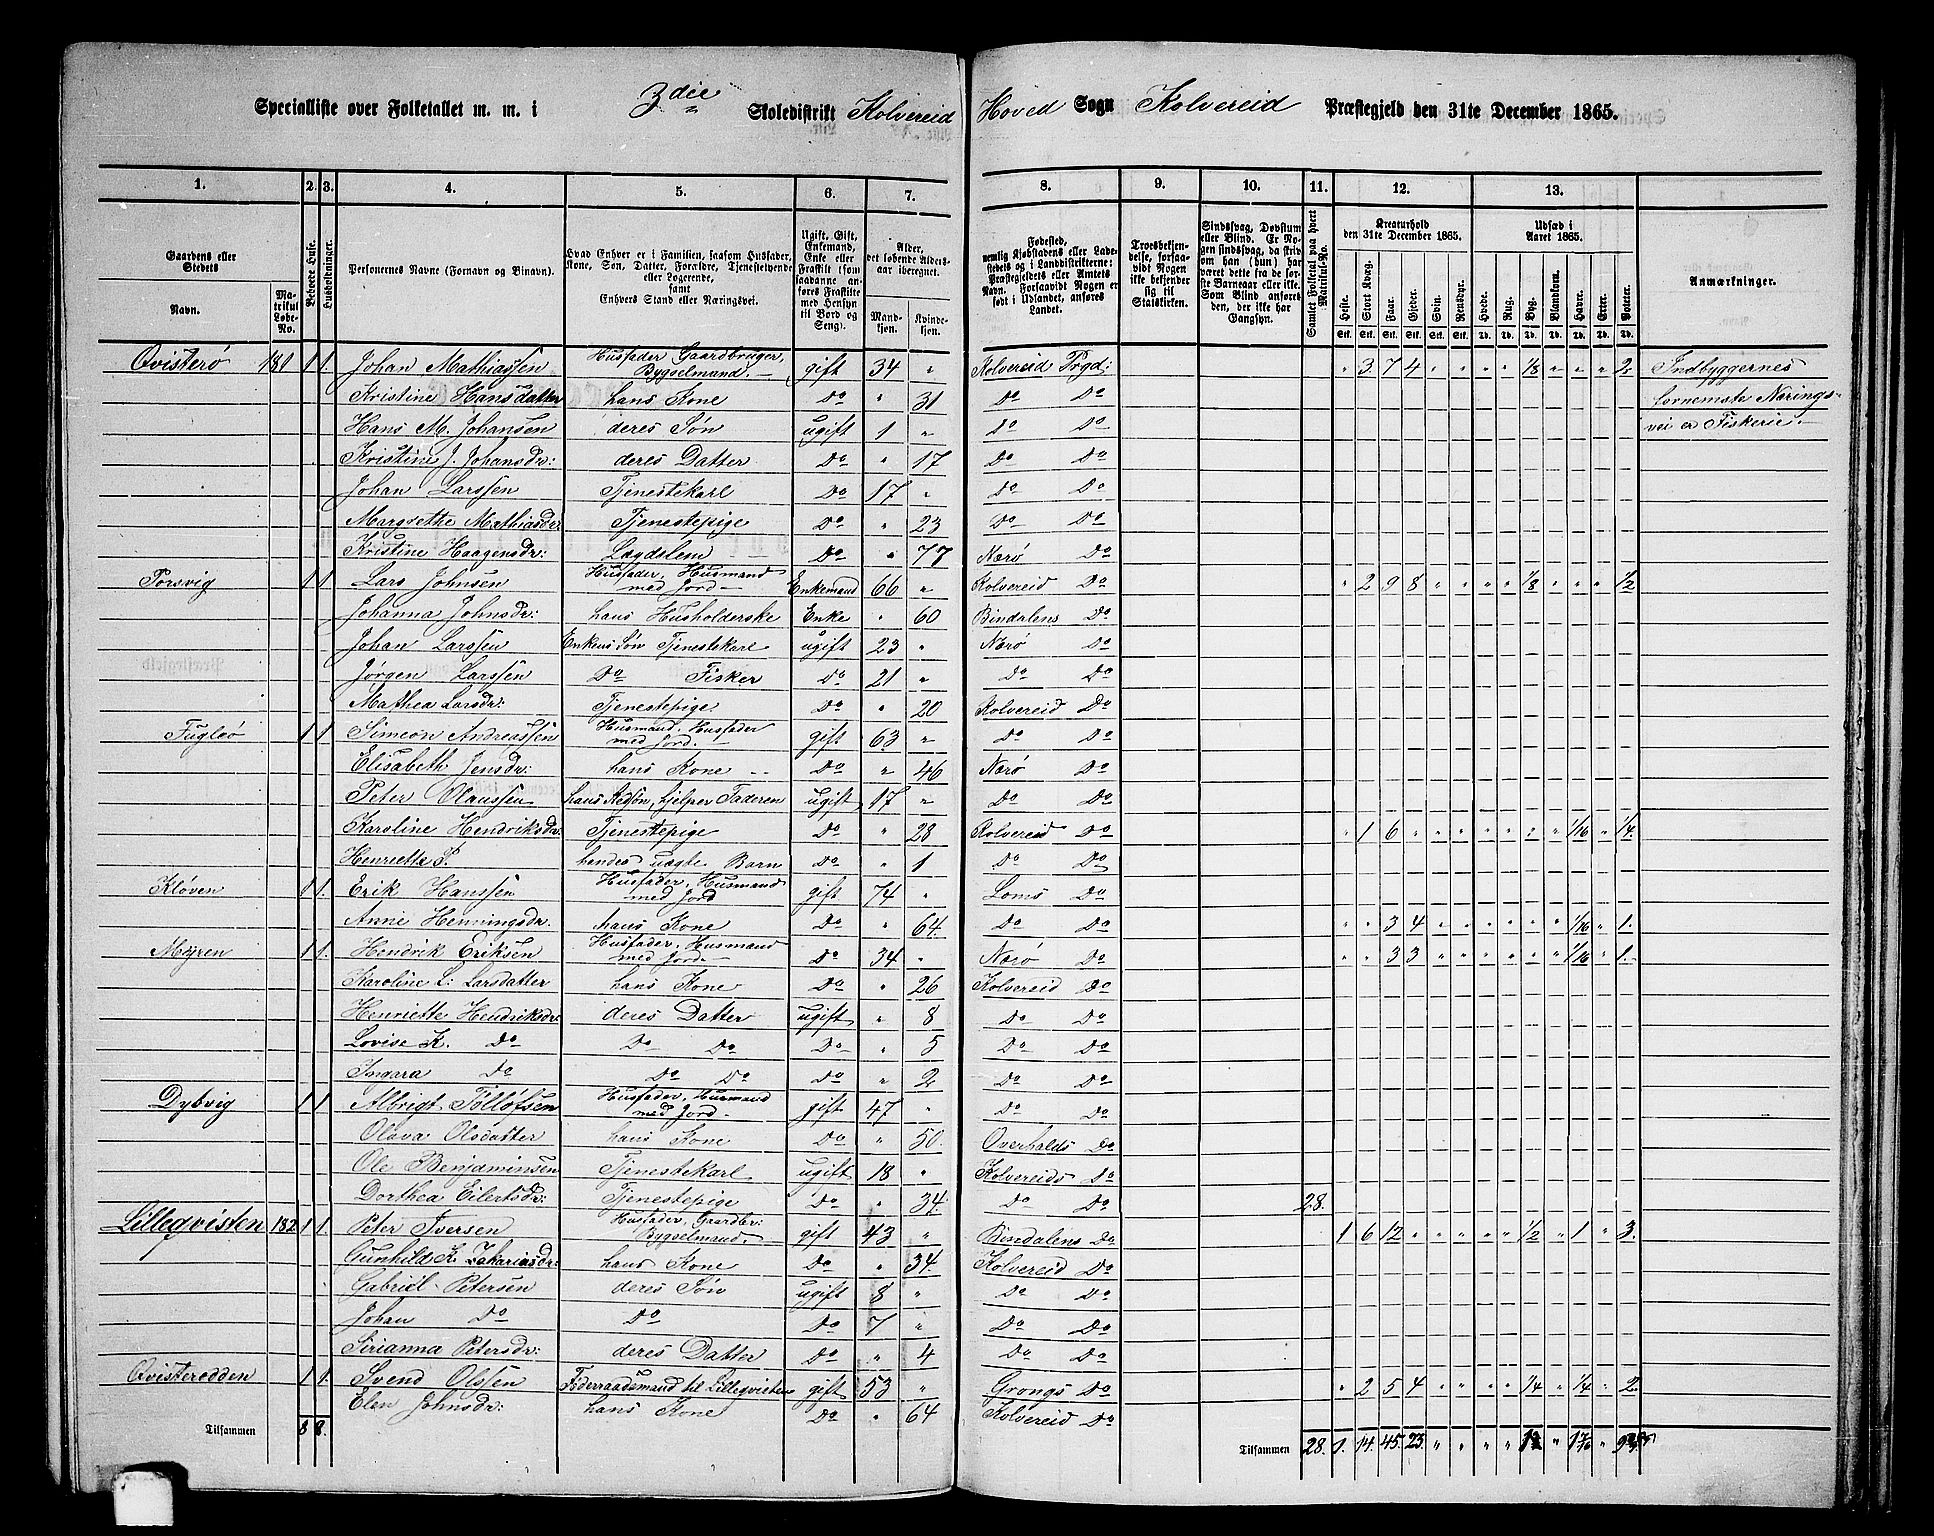 Specialliste over Folketallet m. m. i 3die Skoledistrikt Kolvereid Hoved Sogn Kolvereid Præstegjeld den 31te December 1865.
1. 2. 3. 4. 5. 6. 7. 8. 9. 10. 11. 12. 13.
Gaardens eller Stedets Navn.
Matrikul Løbe-No.
Beboede Huse.
Husholdninger.
Personernes Navne (Fornavn og Binavn).
Hvad Enhver er i Familien, saasom Husfader, Kone, Søn, Datter, Forældre, Tjenestetyende eller Logerende, samt Enhvers Stand eller Næringsvei.
Ugift, Gift, Enkemand, Enke eller Fraskilt (som saadanne anføres Fraskilte med Hensyn til Bord og Seng).
Alder, det løbende Aldersaar iberegnet.
Mandkjøn. Kvindekjøn.
Fødested, nemlig Kjøbstadens eller Ladestedets og i Landdistrikterne: Præstegjeldets eller Amtets Navn. Forsaavidt Nogen er født i Udlandet, anføres Landet.
Troesbekjendelse, forsaavidt Nogen ikke bekjender sig til Statskirken.
Sindssvag, Døvstum eller Blind. Er Nogen sindssvag, da skrives for ham (hun) har været dette fra de første Barneaar eller ikke. Som Blind anføres den, der ikke har Gangsyn.
Samlet Folketal paa hvert Matrikul-No.
Kreaturhold den 31te December 1865.
Heste. Stort Kvæg. Faar. Gjeder. Svin. Rensdyr.
Udsæd i Aaret 1865.
Hvede. Rug. Byg. Blandkorn. Havre. Erter. Poteter.
Stk. Stk. Stk. Stk. Stk. Stk. Td. Td. Td. Td. Td. Td. Td.
Anmærkninger.
Qvisterø 181 1 1 Johan Mathiassen Husfader Gaardbruger, Bygselmand. gift 34 " Kolvereid Prgd: " 3 7 4 " " " " 1/8 " " " 2 Indbyggernes
Kristine Hansdatter hans Kone Do " 31 Do Do fornemste Nærings-
Hans M. Johansen deres Søn ugift 1 " Do Do vei er Fiskerie.
Kristine J. Johansdr: deres Datter Do " 17 Do Do
Johan Larssen Tjenestekarl Do 17 " Do Do
Margrethe Mathiasdr: Tjenestepige Do " 23 Do Do
Kristine Haagensdr: Lægdslem Do " 77 Nærø Do
Porsvig 1 1 Lars Johnsen Husfader, Husmand med Jord Enkemand 66 " Kolvereid Do " 2 9 8 " " " " 1/8 " " " 1/2
Johanna Johnsdr: hans Husholderske Enke " 60 Bindalens Do
Johan Larssen Enkens Søn Tjenestekarl ugift 23 " Nærø Do
Jørgen Larssen Do Fisker Do 21 " Do Do
Mathea Larsdr: Tjenestepige Do " 20 Kolvereid Do
Fuglø 1 1 Simeon Andreassen Husmand, Husfader med Jord. gift 63 " Do Do
Elisabeth Jensdr: hans Kone Do " 46 Nærø Do
Peter Olaussen hans Stedsøn, hjelper Faderen ugift 17 " Do Do
Karoline Hendriksdr: Tjenestepige Do " 28 Kolvereid Do " 1 6 " " " " " " " 1/16 " 1/4
Henriette P. hendes uægte Barn Do " 1 Do Do
Kløven 1 1. Erik Hanssen Husfader, Husmand med Jord gift 74 " Loms Do
Anne Henningsdr. hans Kone Do " 64. Do Do " " 3 4 " " " " " " 1/16 " 1.
Myren 1 1. Hendrik Eriksen Husfader, Husmand med Jord Do 34 " Nærø Do " " 3 3 " " " " " " 1/16 " 1.
Karoline L: Larsdatter hans Kone Do " 26 Kolvereid Do
Henriette Hendriksdr: deres Datter ugift " 8 Do Do
Lovise K. Do Do Do Do " 5 Do Do
Ingara Do Do Do Do " 2 Do Do
Dybvig 1 1 Albrigt Tølløfsen Husfader, Husmand med Jord. gift 47 " Do Do
Olava Olsdatter hans Kone Do " 50. Overhalds Do
Ole Benjaminsen Tjenestekarl ugift 18 " Kolvereids Do
Dorthea Eilertsdr: Tjenestepige Do " 34. Do Do 28.
Lilleqvisten 182 1 1. Peter Iversen Husfader, Gaardbr: Bygselmand. gift 43 " Bindalens Do 1 6 12 " " " " " 1/2 " 1 " 3.
Gunhild K. Zakariasdr: hans Kone Do " 34. Kolvereid Do
Gabriel Petersen deres Søn ugift 8 " Do Do
Johan Do Do Do 7 " Do Do
Sirianna Petersdr: deres Datter Do " 4 Do Do
Qvisterodden 1 1. Svend Olssen Føderraadsmand til Lilleqvisten gift 53 " Grongs Do " 2 5 4 " " " " 1/4 " 1/4 " 2
Elen Johnsdr: hans Kone Do " 64 Kolvereid Do
Tilsammen 8 8. Tilsammen 28. 1. 14. 45. 23. " " " "